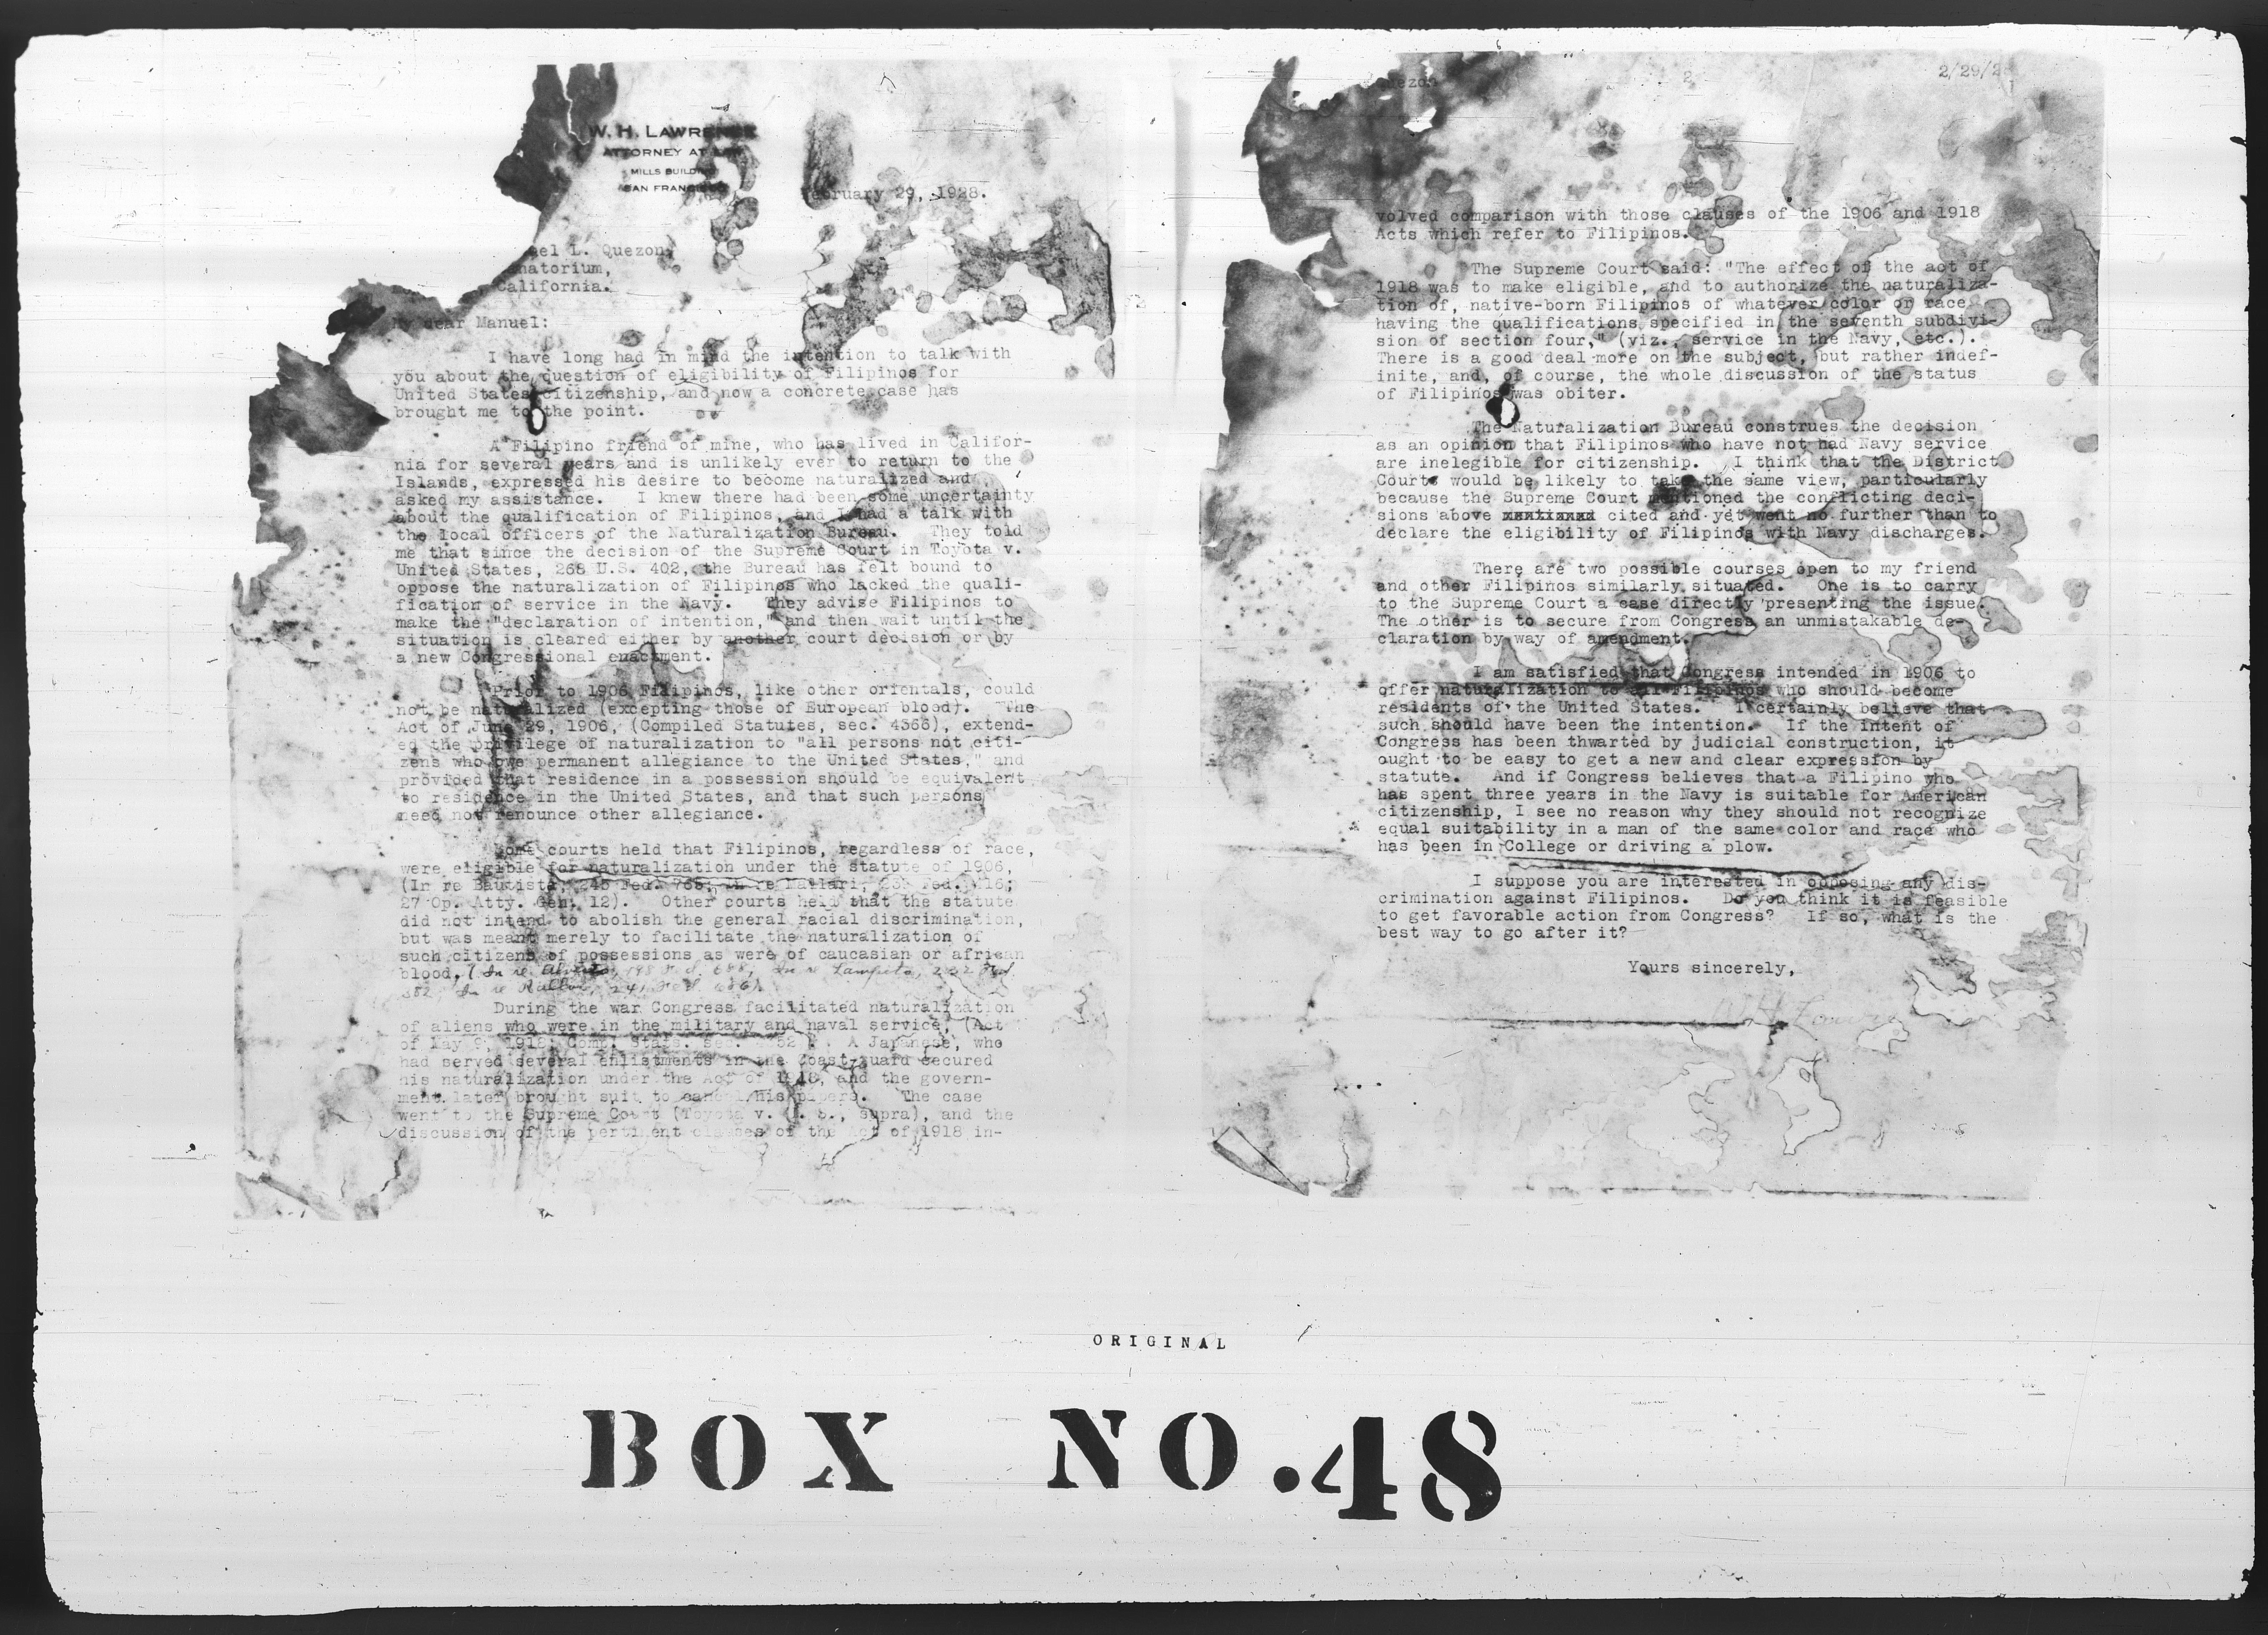 W. H. LAWRENCE
ATTORNEY AT LAW
MILLS BUILDING
SAN FRANCISCO
February 29, 1928.
el L. Quezon,
natorium,
California.
My dear Manuel:
I have long had in mind the intention to talk with
you about the question of eligibility of Filipinos for
United States citizenship, and now a concrete case has
brought me to the point.
A Filipino friend of mine, who has lived in Califor-
nia for several years and is unlikely ever to return to the
Islands, expressed his desire to become naturalized and
asked my assistance. I knew there had been some uncertainty
about the qualification of Filipinos, and I had a talk with
the local officers of the Naturalization Bureau. They told
me that since the decision of the Supreme Court in Toyota v.
United States, 268 U.S. 402, the Bureau has felt bound to
oppose the naturalization of Filipinos who lacked the quali-
fication of service in the Navy. They advise Filipinos to
make the "declaration of intention," and then wait until the
situation is cleared either by another court decision or by
a new Congressional enactment.
Prior to 1906 Filipinos, like other orientals, could
not be naturalized (excepting those of European blood). The
Act of June 29, 1906, (Compiled Statutes, sec. ), extend-
ed the privilege of naturalization to "all persons not citi-
zens who owe permanent allegiance to the United States," and
provided that residence in a possession should be equivalent
to residence in the United States, and that such persons
need not renounce other allegiance.
Some courts held that Filipinos, regardless of race,
were eligible for naturalization under the statute of 1906,
(In re Bautista, 245 Fed. 765; In re Mallari, Fed. 416;
27 Op. Atty. Gen. 12). Other courts held that the statute
did not intend to abolish the general racial discrimination,
but was meant merely to facilitate the naturalization of
such citizens of possessions as were of caucasian or african
blood. (In re Alverto, 198 Fed. 688; In re Lampitoe, 232 Fed.
382; In re Rallos, 241 Fed. 686).
During the war Congress facilitated naturalization
of aliens who were in the military and naval service, (Act
of May 9, 1918; Comp. Stats. sec. ). A Japanese, who
had served several enlistments in the Coast-guard secured
his naturalization under the Act of 1918, and the govern-
ment later brought suit to cancel his papers. The case
went to the Supreme Court (Toyota v. U. S., supra), and the
discussion of the pertinent clauses of the Act of 1918 in-
Quezon 2 2/29/2
volved comparison with those clauses of the 1906 and 1918
Acts which refer to Filipinos.
The Supreme Court said: "The effect of the act of
1918 was to make eligible, and to authorize the naturaliza-
tion of, native-born Filipinos of whatever color or race
having the qualifications specified in the seventh subdivi-
sion of section four," (viz., service in the Navy, etc.).
There is a good deal more on the subject, but rather indef-
inite, and, of course, the whole discussion of the status
of Filipinos was obiter.
The Naturalization Bureau construes the decision
as an opinion that Filipinos who have not had Navy service
are inelegible for citizenship. I think that the District
Courts would be likely to take the same view, particularly
because the Supreme Court mentioned the conflicting deci-
sions above cited and yet went no further than to
declare the eligibility of Filipinos with Navy discharges.
There are two possible courses open to my friend
and other Filipinos similarly situated. One is to carry
to the Supreme Court a case directly presenting the issue.
The other is to secure from Congress an unmistakable de-
claration by way of amendment.
I am satisfied that Congress intended in 1906 to
offer naturalization to all Filipinos who should become
residents of the United States. I certainly believe that
such should have been the intention. If the intent of
Congress has been thwarted by judicial construction, it
ought to be easy to get a new and clear expression by
statute. And if Congress believes that a Filipino who
has spent three years in the Navy is suitable for American
citizenship, I see no reason why they should not recognize
equal suitability in a man of the same color and race who
has been in College or driving a plow.
I suppose you are interested in opposing any dis-
crimination against Filipinos. Do you think it is feasible
to get favorable action from Congress? If so, what is the
best way to go after it?
Yours sincerely,
W H Lawre
ORIGINAL
BOX NO. 48